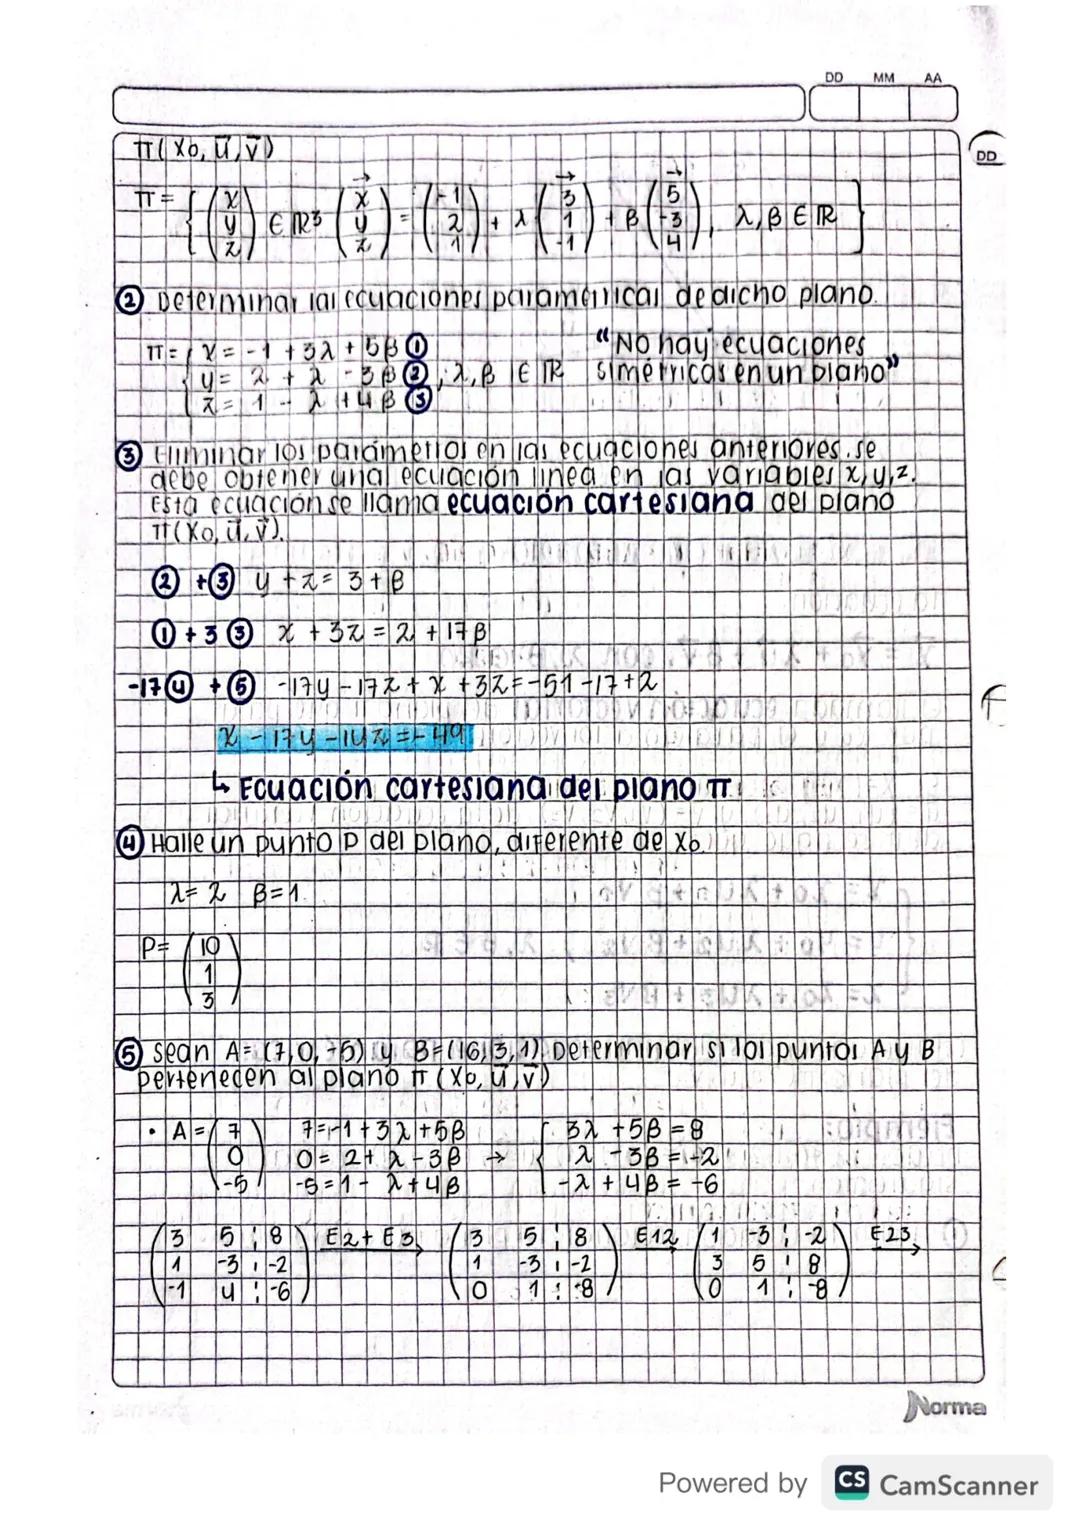 DD MM AA
DD
π(X₀, u⃗, v⃗)
π = { (x y z) ∈ ℝ³ (x y z) = (-1 2 1) + λ (3 1 -1) + β (5 -3 4), λ, β ∈ ℝ }
② Determinar las ecuaciones paramétricas de dicho plano.
π = { x = -1 + 3λ + 5β ① "No hay ecuaciones
y = 2 + λ - 3β ② ; λ, β ∈ ℝ simétricas en un plano"
z = 1 - λ + 4β ③
③ Eliminar los parámetros en las ecuaciones anteriores. se
debe obtener una ecuación linea en las variables x, y, z.
Esta ecuación se llama ecuación cartesiana del plano
π(X₀, u⃗, v⃗).
② + ③ y + z = 3 + β
① + 3 ③ x + 3z = 2 + 17β
-17 ④ + ⑤ -17y - 17z + x + 3z = -51 - 17 + 2
x - 17y - 14z = -49
↳ Ecuación cartesiana del plano π
④ Halle un punto P del plano, diferente de X₀.
λ = 2 β = 1.
P = (10 1 3)
⑤ Sean A = (7, 0, -5) y B = (16, 3, 1). Determinar si los puntos A y B
pertenecen al plano π (X₀, u⃗, v⃗)
• A = (7 7 = -1 + 3λ + 5β { 3λ + 5β = 8
0 0 = 2 + λ - 3β → λ - 3β = -2
-5) -5 = 1 - λ + 4β -λ + 4β = -6
(3 5 ¦ 8 E2 + E3 (3 5 ¦ 8 E12 (1 -3 ¦ -2 E23
1 -3 ¦ -2 → 1 -3 ¦ -2 → 3 5 ¦ 8 →
-1 4 ¦ -6) 0 1 ¦ -8) 0 1 ¦ -8)
Norma
Powered by CS CamScanner